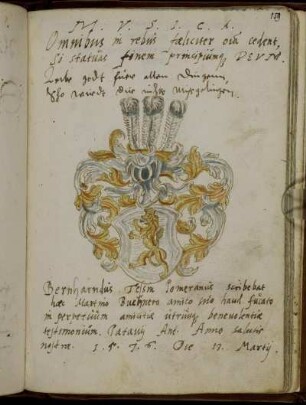 159
M. V. S. I. C. A.
Omnibus in rebus fœliciter om̃ cedent,
Si statuas finem principiumq; DEVM.
Liebe Gott fuer allen Dingenn,
So wirdt dir nichts
Bernhardus Pomeranus scribebat
hæc Martino Buchnero amico suo haud fucato
in perpetuum amicitiæ utriusq; benevolentiæ
testimonium. Patavij Ant. Anno salutis
nostræ. 1. 5. 7. 6. Die 17. Martij